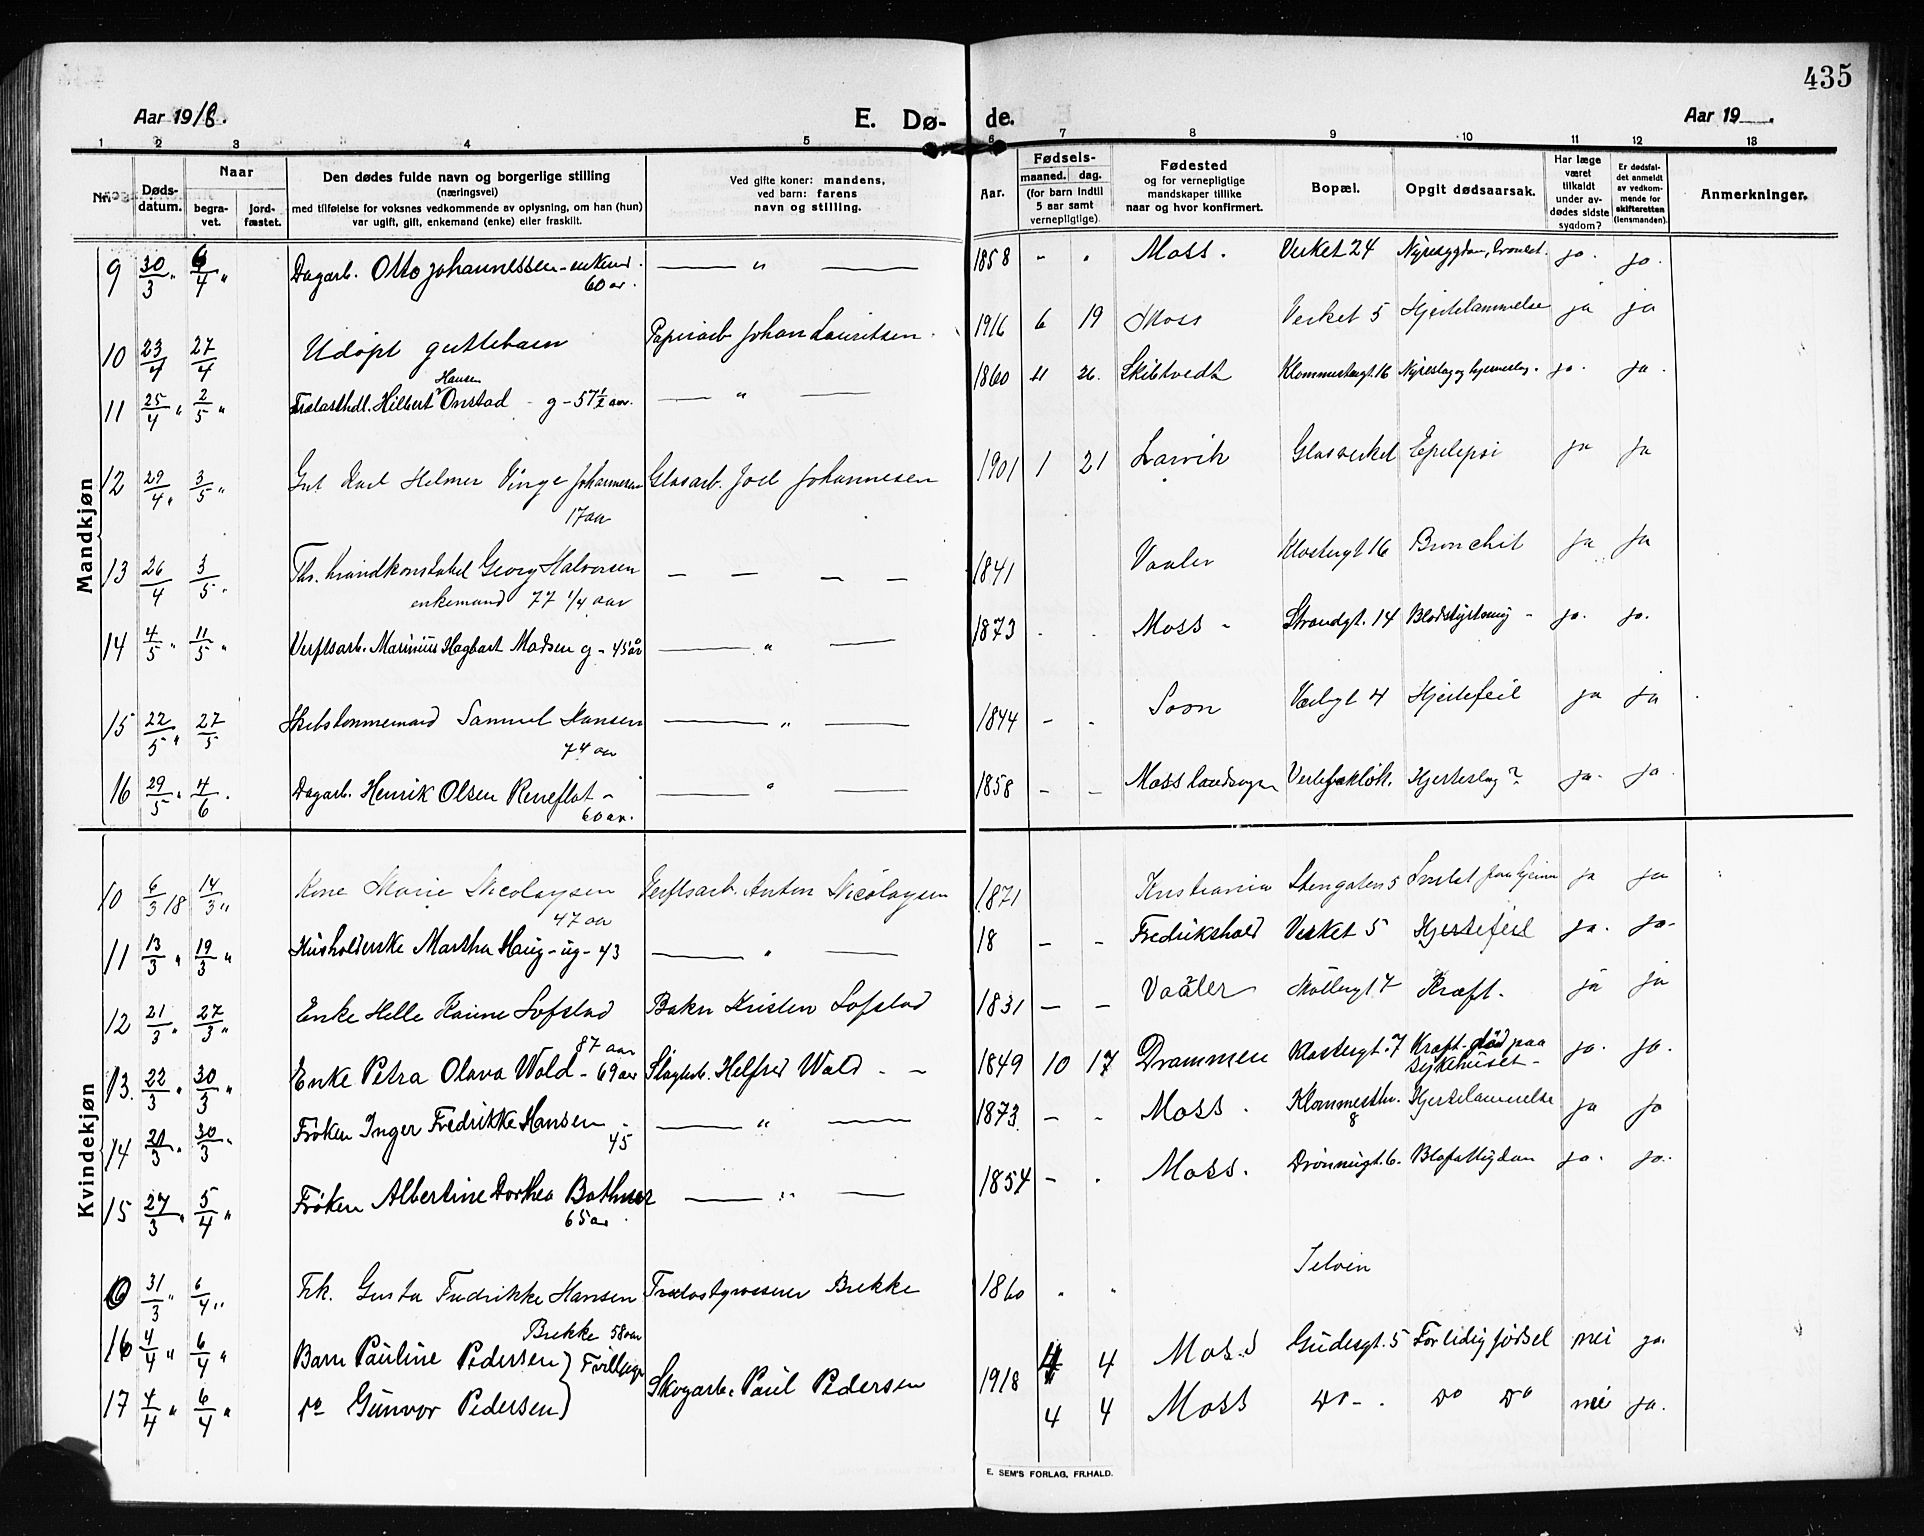 435
Aar 1918. E. Dø- de. Aar 19 .
1 2 3 4 5 6 7 8 9 10 11 12 13
Nr. Dødsdatum. Naar begravet. jordfæstet.
Den dødes fulde navn og borgerlige stilling
(næringsvei)
med tilføielse for voksnes vedkommende av oplysning, om han (hun)
var ugift, gift, enkemand (enke) eller fraskilt.
Ved gifte koner: mandens,
ved barn: farens
navn og stilling.
Aar.
Fødsels-
maaned. dag.
(for barn indtil
5 aar samt
vernepligtige)
Fødested
og for vernepligtige
mandskaper tillike
naar og hvor konfirmert.
Bopæl.
Opgit dødsaarsak.
Har læge
været
tilkaldt
under av-
dødes sidste
sygdom?
Er dødsfal-
det anmeldt
av vedkom-
mende for
skifteretten
(lensmanden).
Anmerkninger.
Mandkjøn
9 30/3 " 6/4 " Dagarb. Otto Johannessen - enkemd. 60 ar. — " — 1858 - " Moss. Verket 24 ja. ja.
10 23/4 27/4 Udøpt guttebarn Papirarb Johan Lauritsen. 1916 6 19 Moss Verket 5 Hjertelammelse ja ja
11 25/4 " 2/5 " Trælasthdl. Hilbert Hansen Onstad - g - 57½ aar. — " — 1860 11 26. Skibtvedt 16 ja. ja.
12 29/4 " 3/5 " Gut Karl Helmer Vinge Johannesen 17 aar Glasarb. Joel Johannesen 1901 1 21 Larvik Glasverket Epilepsi ja ja
13 26/4 3/5 " Fhv. brandkonstabel Georg Halvorsen enkemand 77 1/4 aar — — — — 1841 Vaaler Klostergt 16 Bronchit ja ja
14 4/5 " 11/5 " Verftsarb. Marinius Hagbart Madsen g - 45 år — " — 1873 - . Moss - Strandgt. 14 Blodstyrtning - ja. ja.
15 22/5 " 27/5 Skibstømmermand Samuel Hansen 74 aar — " — 1844 - - Soon 4 Hjertefeil ja ja
16 29/5 " 4/6 . Dagarb. Henrik Olsen Reneflot - 60 ar. — " — 1858 - - Moss landsogn Hjerteslag? ja. ja
Kvindekjøn
10 6/3 18 14/3 " Kone Marie Nicolaysen 47 aar Verftsarb. Anton Nicolaysen 1871 Kristiania Stengaten 5 ja ja
11 13/3 " 19/3 " Husholderske Martha Haug - ug - 43 — " — 18 - - Fredrikshald Verket 5 Hjertefeil ja. ja-
12 21/3 " 27/3 " Enke Helle Karine Lofstad 87 aar Baker Kristen Lofstad 1831 - - Vaaler Møllergt 7 Kræft. ja ja
13. 22/3 " 30/3 " Enke Petra Olava Wold - 69 aar Slagterb. Helfred Wold - - 1849 10 17 Drammen Klostergt. 7 Kræft. død paa sykehuset - ja. ja.
14 21/3 " 30/3 " Frøken Inger Fredrikke Hansen - 45 — " — 1873 - - Moss. 8 Hjertelammelse ja ja
15 27/3 " 5/4 " Frøken Albertine Dorthea Bothner 65 ar — " — 1854 - . Moss. Dronnigt. 6. Blofattigdom ja. ja.
31/3 " 6/4 " Frk. Gusta Fredrikke Hansen Brekke 58 aar Brekke 1860 " "
16 4/4 " 6/4 " Barn Pauline Pedersen } Tvillinger Skogarb. Paul Pedersen 1918 4 4 Moss Gudesgt. 5 For tidig fødsel nei ja.
17 4/4 " 6/4 " do Gunvor Pedersen } 4 4 Moss Do - . Do Do nei ja.
E. SEM'S FORLAG, FR.HALD.